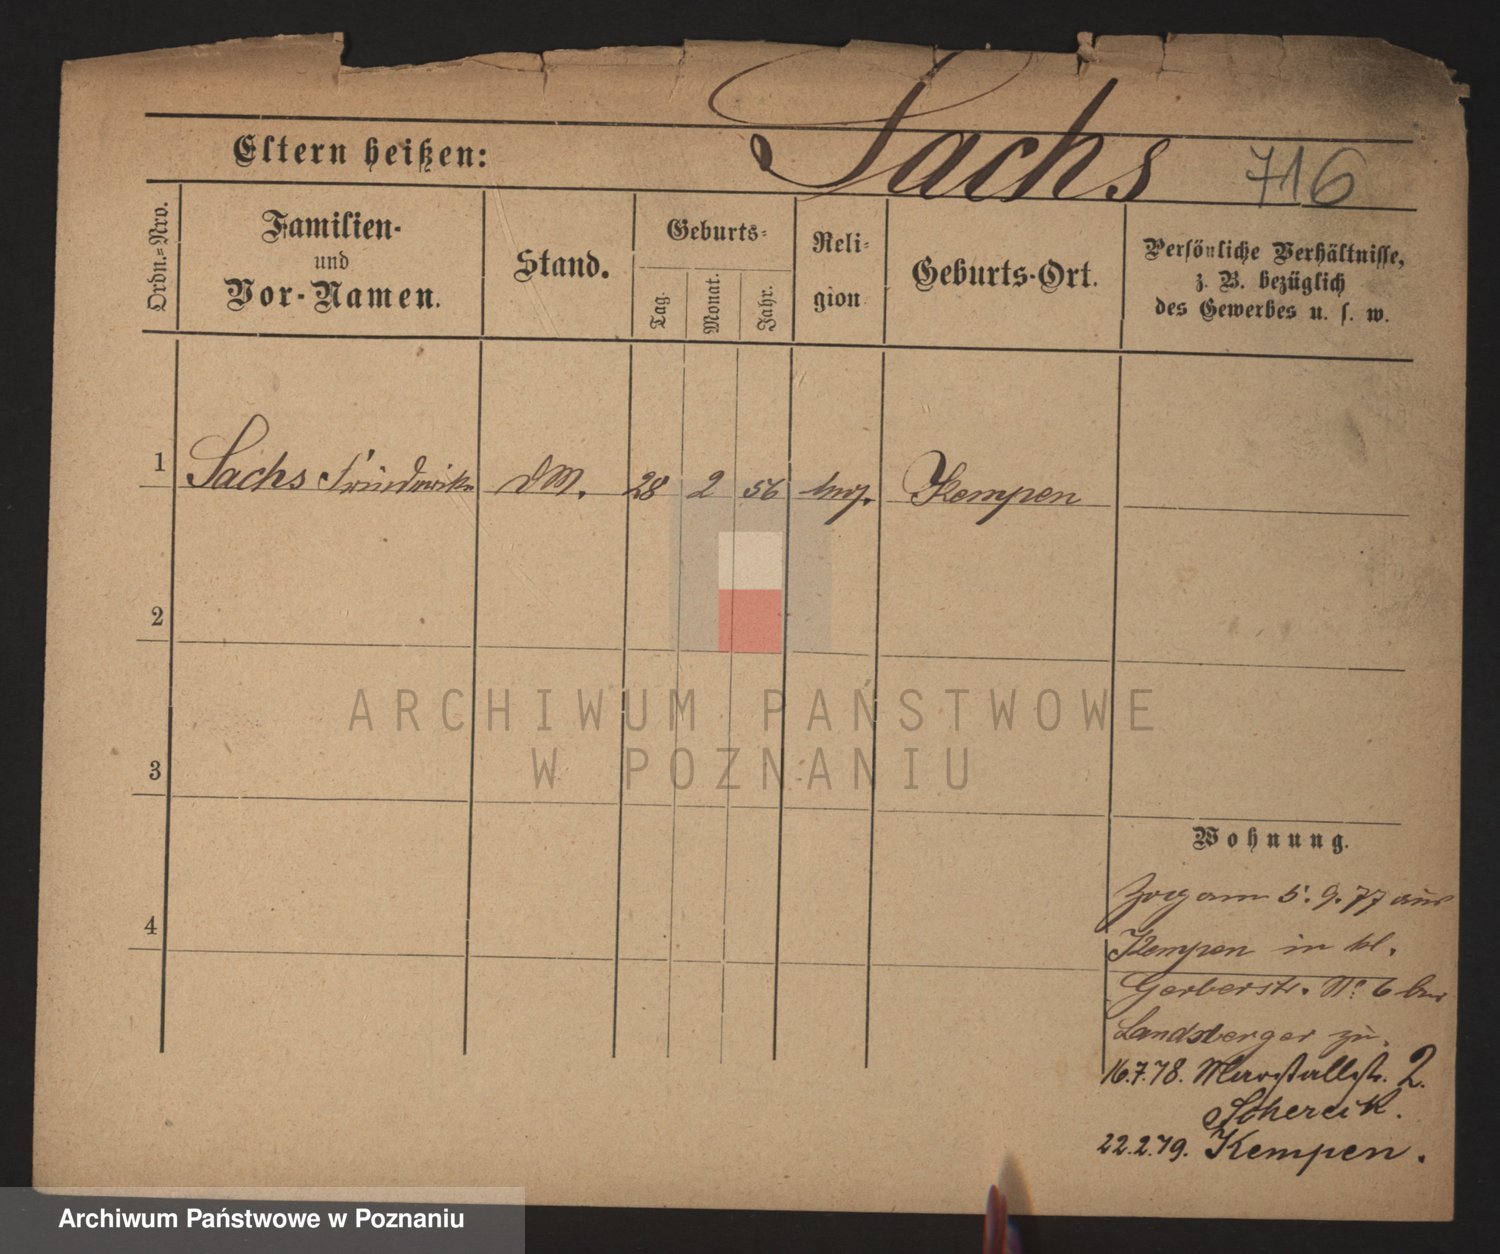 Sachs 716
Eltern heißen:
Ordn.-Nro.
Familien-
und
Vor-Namen.
Stand.
Geburts-
Tag.
Monat.
Jahr.
Reli-
gion
Geburts-Ort.
Persönliche Verhältnisse,
z. B. bezüglich
des Gewerbes u. s. w.
1 Sachs Friederike dM. 28 2 56 Kempen
2
3
4
Wohnung.
Zog am 5. 9. 77 aus
Kempen in kl.
Gerberstr. No 6 bei
Landsberger zu.
16.7.78. Marstallstr. 2.
22.2.79. Kempen.
ARCHIWUM PAŃSTWOWE
W POZNANIU
Archiwum Państwowe w Poznaniu